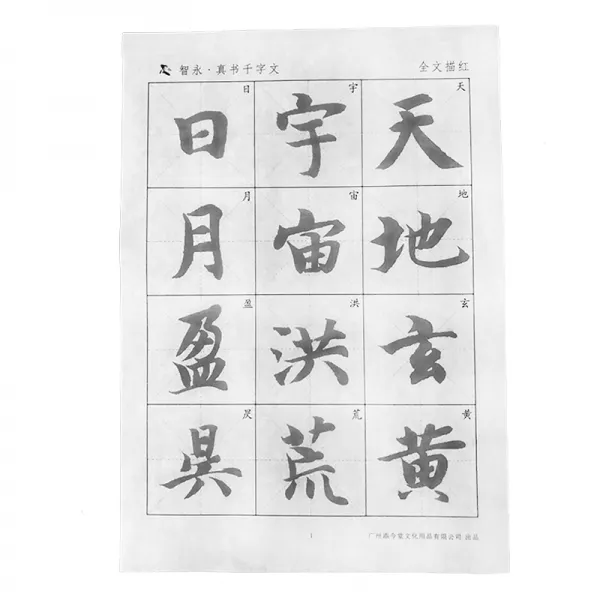 智永·真书千字文
全文描红
天地玄黄
天地玄黄
宇宙洪荒
宇宙洪荒
日月盈昃
日月盈昃
1
广州 文化用品有限公司 出品